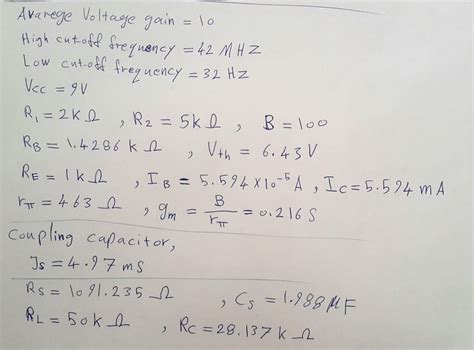 Avarege Voltage gain = 10
High cut-off frequency = 42 MHZ
Low cut-off frequency = 32 HZ
Vcc = 9V
R1 = 2k Ω , R2 = 5k Ω , B = 100
RB = 1.4286 k Ω , Vth = 6.43 V
RE = 1k Ω , IB = 5.594 x10^-5 A , Ic = 5.594 mA
rπ = 463 Ω , gm = B/rπ = 0.216 S
Coupling capacitor,
Js = 4.97 ms
Rs = 1091.235 Ω , Cs = 1.988 μF
RL = 50k Ω , Rc = 28.137 k Ω